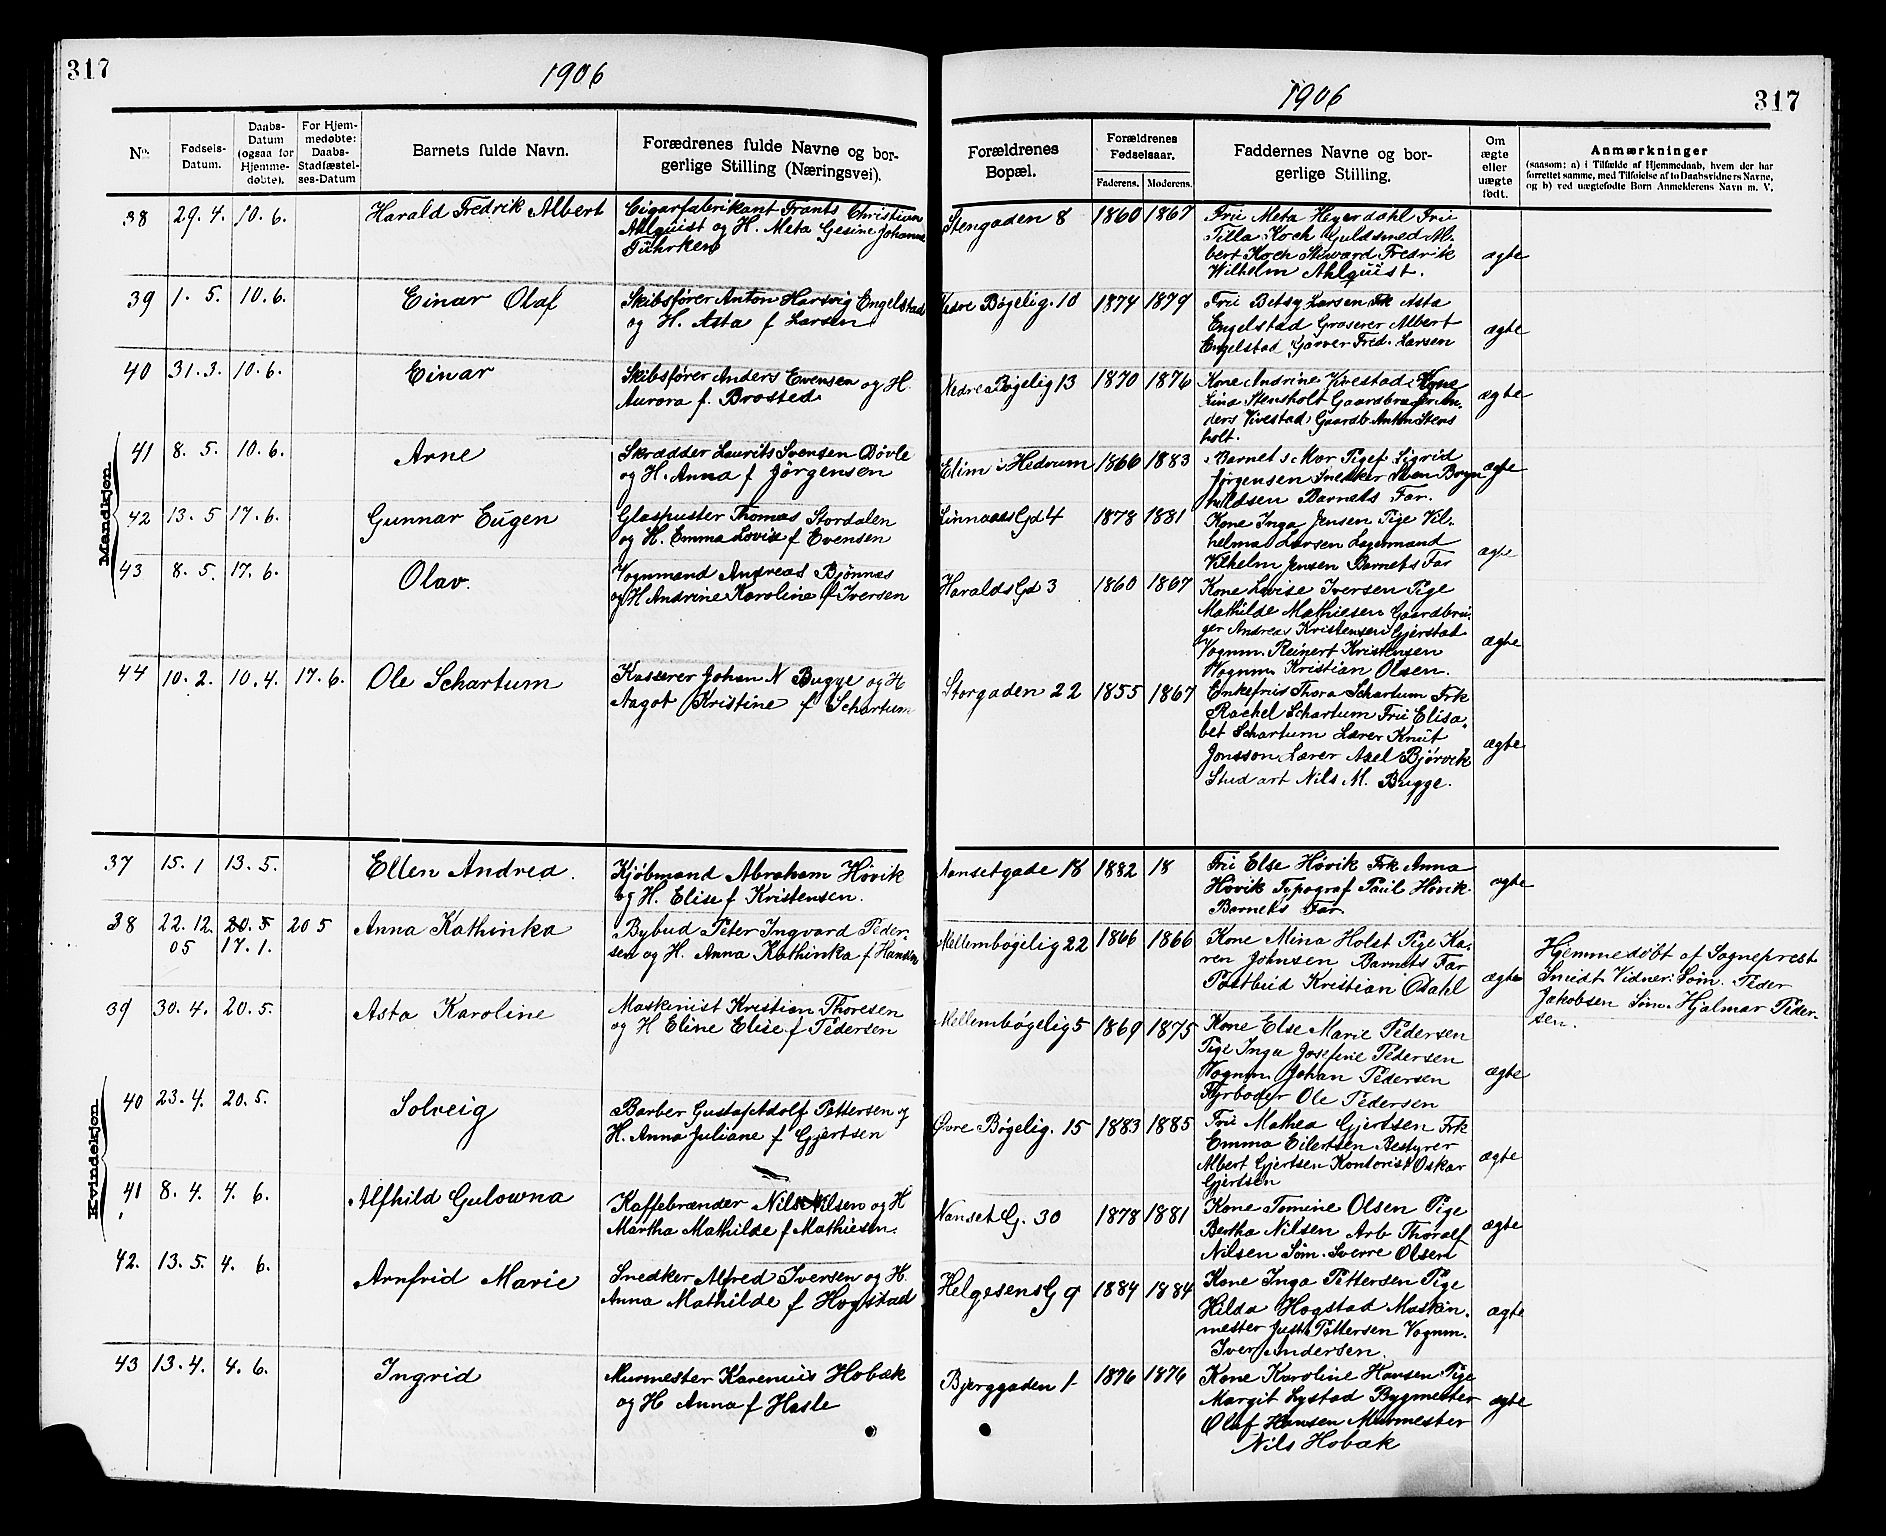 317
1906
1906
317
No. Fødsels-Datum. Daabs-Datum (ogsaa for Hjemme-døbte). For Hjem-medøbte: Daabs-Stadfæstel-ses-Datum Barnets fulde Navn. Forædrenes fulde Navne og bor-gerlige Stilling (Næringsvei). Forældrenes Bopæl. Forældrenes Fødselsaar. Faderens. Moderens. Faddernes Navne og bor-gerlige Stilling. Om ægte eller uægte født. Anmærkninger
(saasom: a) i Tilfælde af Hjemmedaab, hvem der har
forrettet samme, med Tilføielse af to Daabsvidners Navne,
og b) ved uægtefødte Born Anmelderens Navn m. V.
Mandkjøn
38 29.4. 10.6. Harald Fredrik Albert
Cigarfabrikant Frants Christian
Ahlquist og H. Meta Gesine Johanne
Tührken
Stengaden 8 1860 1867
Fru Meta Heyerdahl Fru
Tilla Koch Guldsmed Al-
bert Koch Stuward Fredrik
Wilhelm Ahlquist.
ægte
39 1.5. 10.6. Einar Olaf
Skibsfører Anton Hartvig Engelstad
og H. Asta f Larsen
Nedre Bøgelig. 10 1874 1879
Fru Betsy Larsen Frk Asta
Engelstad Groserer Albert
Engelstad Garver Fred. Larsen
ægte
40 31.3. 10.6. Einar
Skibsfører Anders Evensen og H.
Aurora f. Brosted
Nedre Bøgelig 13 1870 1876
Kone Andrine Kvestad Kone
Lina Stensholt Gaardbruger An-
ders Kvestad Gaardb. Anton Stens
holt.
ægte
41 8.5. 10.6. Arne
Skrædder Laurits Svensen Døvle
og H. Anna f Jørgensen
Elim i Hedrum 1866 1883
Barnets Mor Pigef Sigrid
Jørgensen Snedker Sten Borgu
huldsen Barnets Far.
ægte
42 13.5 17.6. Gunnar Eugen
Glaspuster Thomas Stordalen
og H. Emma Lovise f Evensen
Linnaas Gd 4 1878 1881
Kone Inga Jensen Pige Vil-
helma Larsen Lagermand
Vilhelm Jensen Barnets Far
ægte
43 8.5. 17.6. Olav.
Vognmand Andreas Bjønnes
og H Andrine Karoline f Iversen
Haralds Gd 3 1860 1867
Kone Lovise Iversen Pige
Mathilde Mathiesen Gaardbru-
ger Andreas Kristensen Gjerstad
Vognm. Reinert Kristensen
Vognm. Kristian Olsen.
ægte
44 10.2. 10.4. 17.6. Ole Schartum
Kasserer Johan N Bugge og H
Aagot Kristine f Schartum
Storgaden 22 1855 1867
Enkefru Thora Schartum Frk
Rachel Schartum Fru Elisa-
bet Schartum Lærer Knut
Jonsson Lærer Axel Bjørvik
Stud art Nils M. Bugge.
ægte
Kvindekjøn
37 15.1 13.5. Ellen Andrea.
Kjøbmand Abraham Høvik
og H. Elise f Kristensen.
Nansetgade 18 1882 18
Fru Else Høvik Frk Anna
Høvik Typograf Paul Høvik
Barnets Far.
ægte
38 22.12 05 20.5 17.1. 20 5 Anna Kathinka
Bybud Peter Ingvard Peder-
sen og H. Anna Kathinka f Hansen
Mellembøgelig 22 1866 1866
Kone Mina Holst Pige Ka-
ren Johnsen Barnets Far
Postbud Kristian Odahl
ægte
Hjemmedøbt af Sogneprest
Smidt. Vidner: Søm. Peder
Jakobsen Søm. Hjalmar Peder-
sen.
39 30.4. 20.5. Asta Karoline
Maskinist Kristian Thoresen
og H Eline Elise f Pedersen
Mellembøgelig 5 1869 1875
Kone Else Marie Pedersen
Pige Inga Josefine Pedersen
Vognm. Johan Pedersen
Fyrbøder Ole Pedersen
ægte
40 23.4. 20.5. Solveig
Barber Gustaf Adolf Pettersen og
H. Anna Juliane f Gjertsen
Øvre Bøgelig. 15 1883 1885
Fru Mathea Gjertsen Frk
Emma Eilertsen Bestyrer
Albert Gjertsen Kontorist Oskar
Gjertsen
ægte
41 8.4. 4.6. Alfhild Gulowna
Kaffebrænder Nils Nilsen og H
Martha Mathilde f Mathiesen.
Nanset G. 30 1878 1881
Kone Tomine Olsen Pige
Bertha Nilsen Arb Thoralf
Nilsen Søm. Sverre Olsen
ægte
42. 13.5. 4.6. Arnfrid Marie
Snedker Alfred Iversen og H.
Anna Mathilde f Hogstad
Helgesens G 9 1884 1884
Kone Inga Pettersen Pige
Hilda Hogstad Maskin-
mester Just Pettersen Vognm.
Iver Andersen.
ægte
43 13.4. 4.6. Ingrid
Murmester Karenius Hobæk
og H Anna f Hasle
Bjerggaden 1 1876 1876
Kone Karoline Hansen Pige
Margit Lystad Bygmester
Olaf Hansen Murmester
Nils Hobæk
ægte